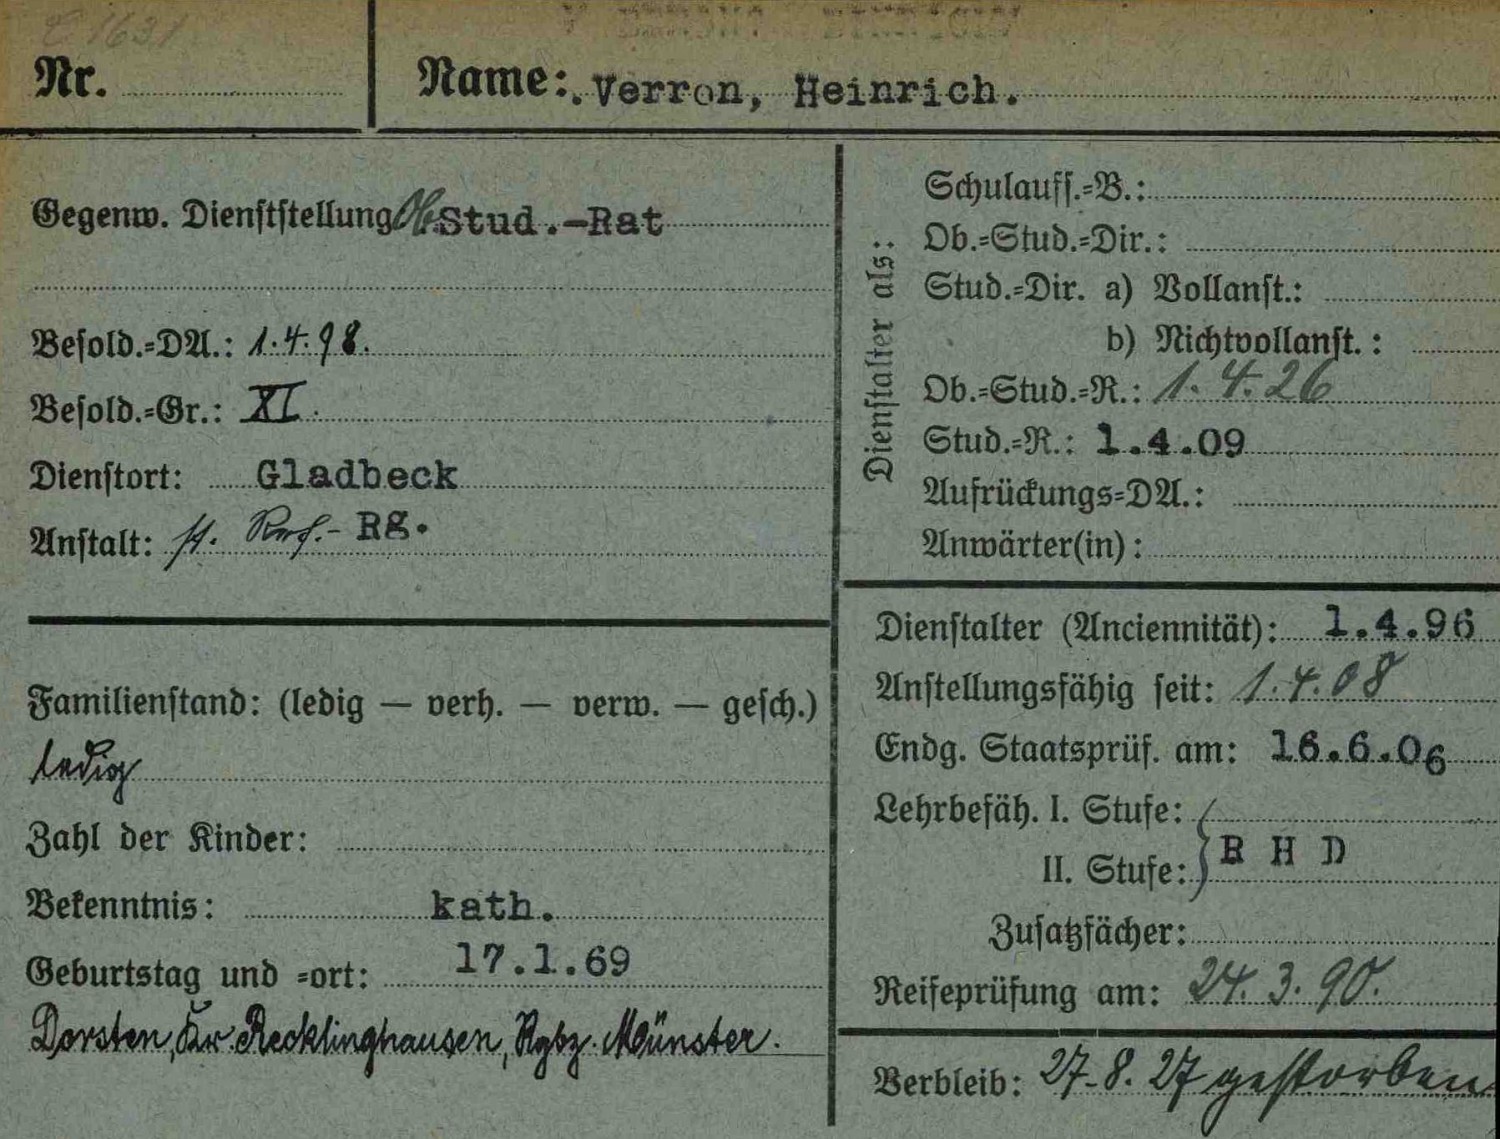 Nr.
Name: Verron, Heinrich.
Gegenw. Dienststellung Ob. Stud.-Rat
Besold.-DA.: 1.4.98.
Besold.-Gr.: XI.
Dienstort: Gladbeck
Anstalt: st. Ref.- Rg.
Familienstand: (ledig — verh. — verw. — gesch.)
ledig
Zahl der Kinder:
Bekenntnis: kath.
Geburtstag und -ort: 17.1.69
Dorsten, Kr. Recklinghausen, Rgbz. Münster.
Dienstalter als:
Schulauff.-B.:
Ob.-Stud.-Dir.:
Stud.-Dir. a) Vollanst.:
b) Nichtvollanst.:
Ob.-Stud.-R.: 1.4.26
Stud.-R.: 1.4.09
Aufrückungs-DA.:
Anwärter(in):
Dienstalter (Anciennität): 1.4.96
Anstellungsfähig seit: 1.4.08
Endg. Staatsprüf. am: 16.6.06
Lehrbefäh. I. Stufe:
II. Stufe: R H D
Zusatzfächer:
Reifeprüfung am: 24.3.90.
Verbleib: 27.8.27 gestorben